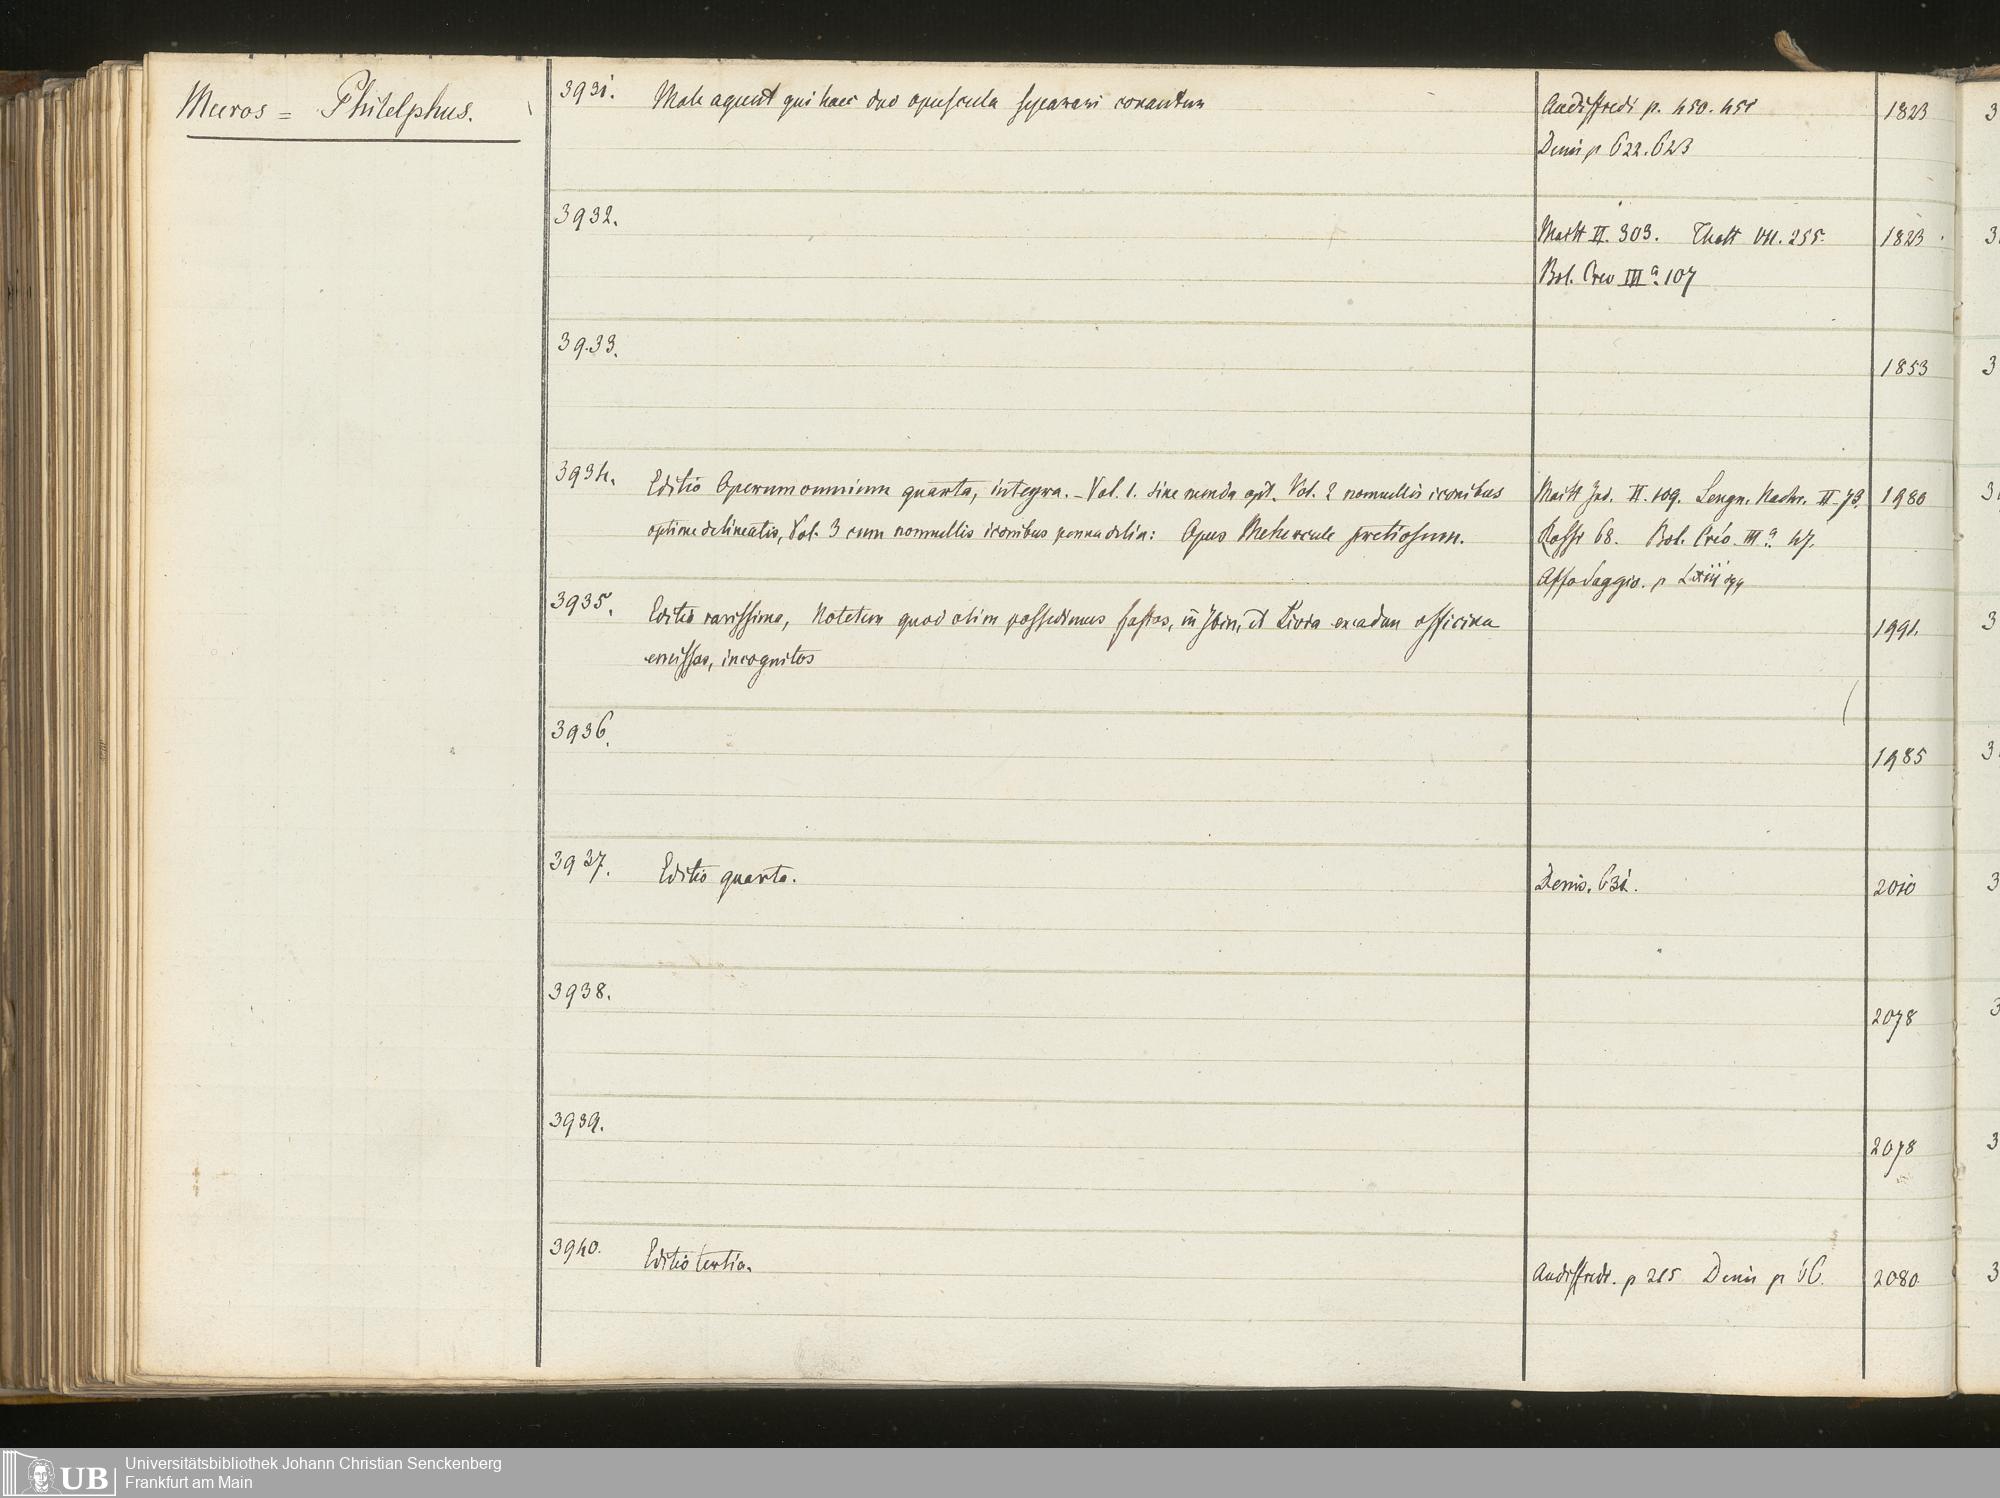 Meeros = Philelphus.
3931. Male agunt qui haec duo opuscula separari conantur Audiffredi p. 450. 451 1823
Denis p 622. 623
3932. Maitt II. 303. Thott VII. 255. 1823
Bol. Crev III a. 107
3933. 1853
3934. Editio Operum omnium quarta, integra. - Vol. 1. sine menda opt. Vol. 2 nonnullis iconibus Maitt Ind. II. 109. Lengn. Nachr. II 73. 1980
optime delineatis, Vol. 3 cum nonnullis iconibus penna delin: Opus Mehercule pretiosum. Rossi 68. Bol. Crev. III a. 47.
Affo Saggio. p LXIII sqq
3935. Editio rarissima, Notetur quod olim possedimus fastos, in et Livia eacadem officina 1991.
emissos, incognitos
3936. 1985
3937. Editio quarta. Denis. 631. 2010
3938. 2078
3939. 2078
3940. Editio tertia. Audiffredi. p 265 Denis p 2080
UB Universitätsbibliothek Johann Christian Senckenberg
Frankfurt am Main